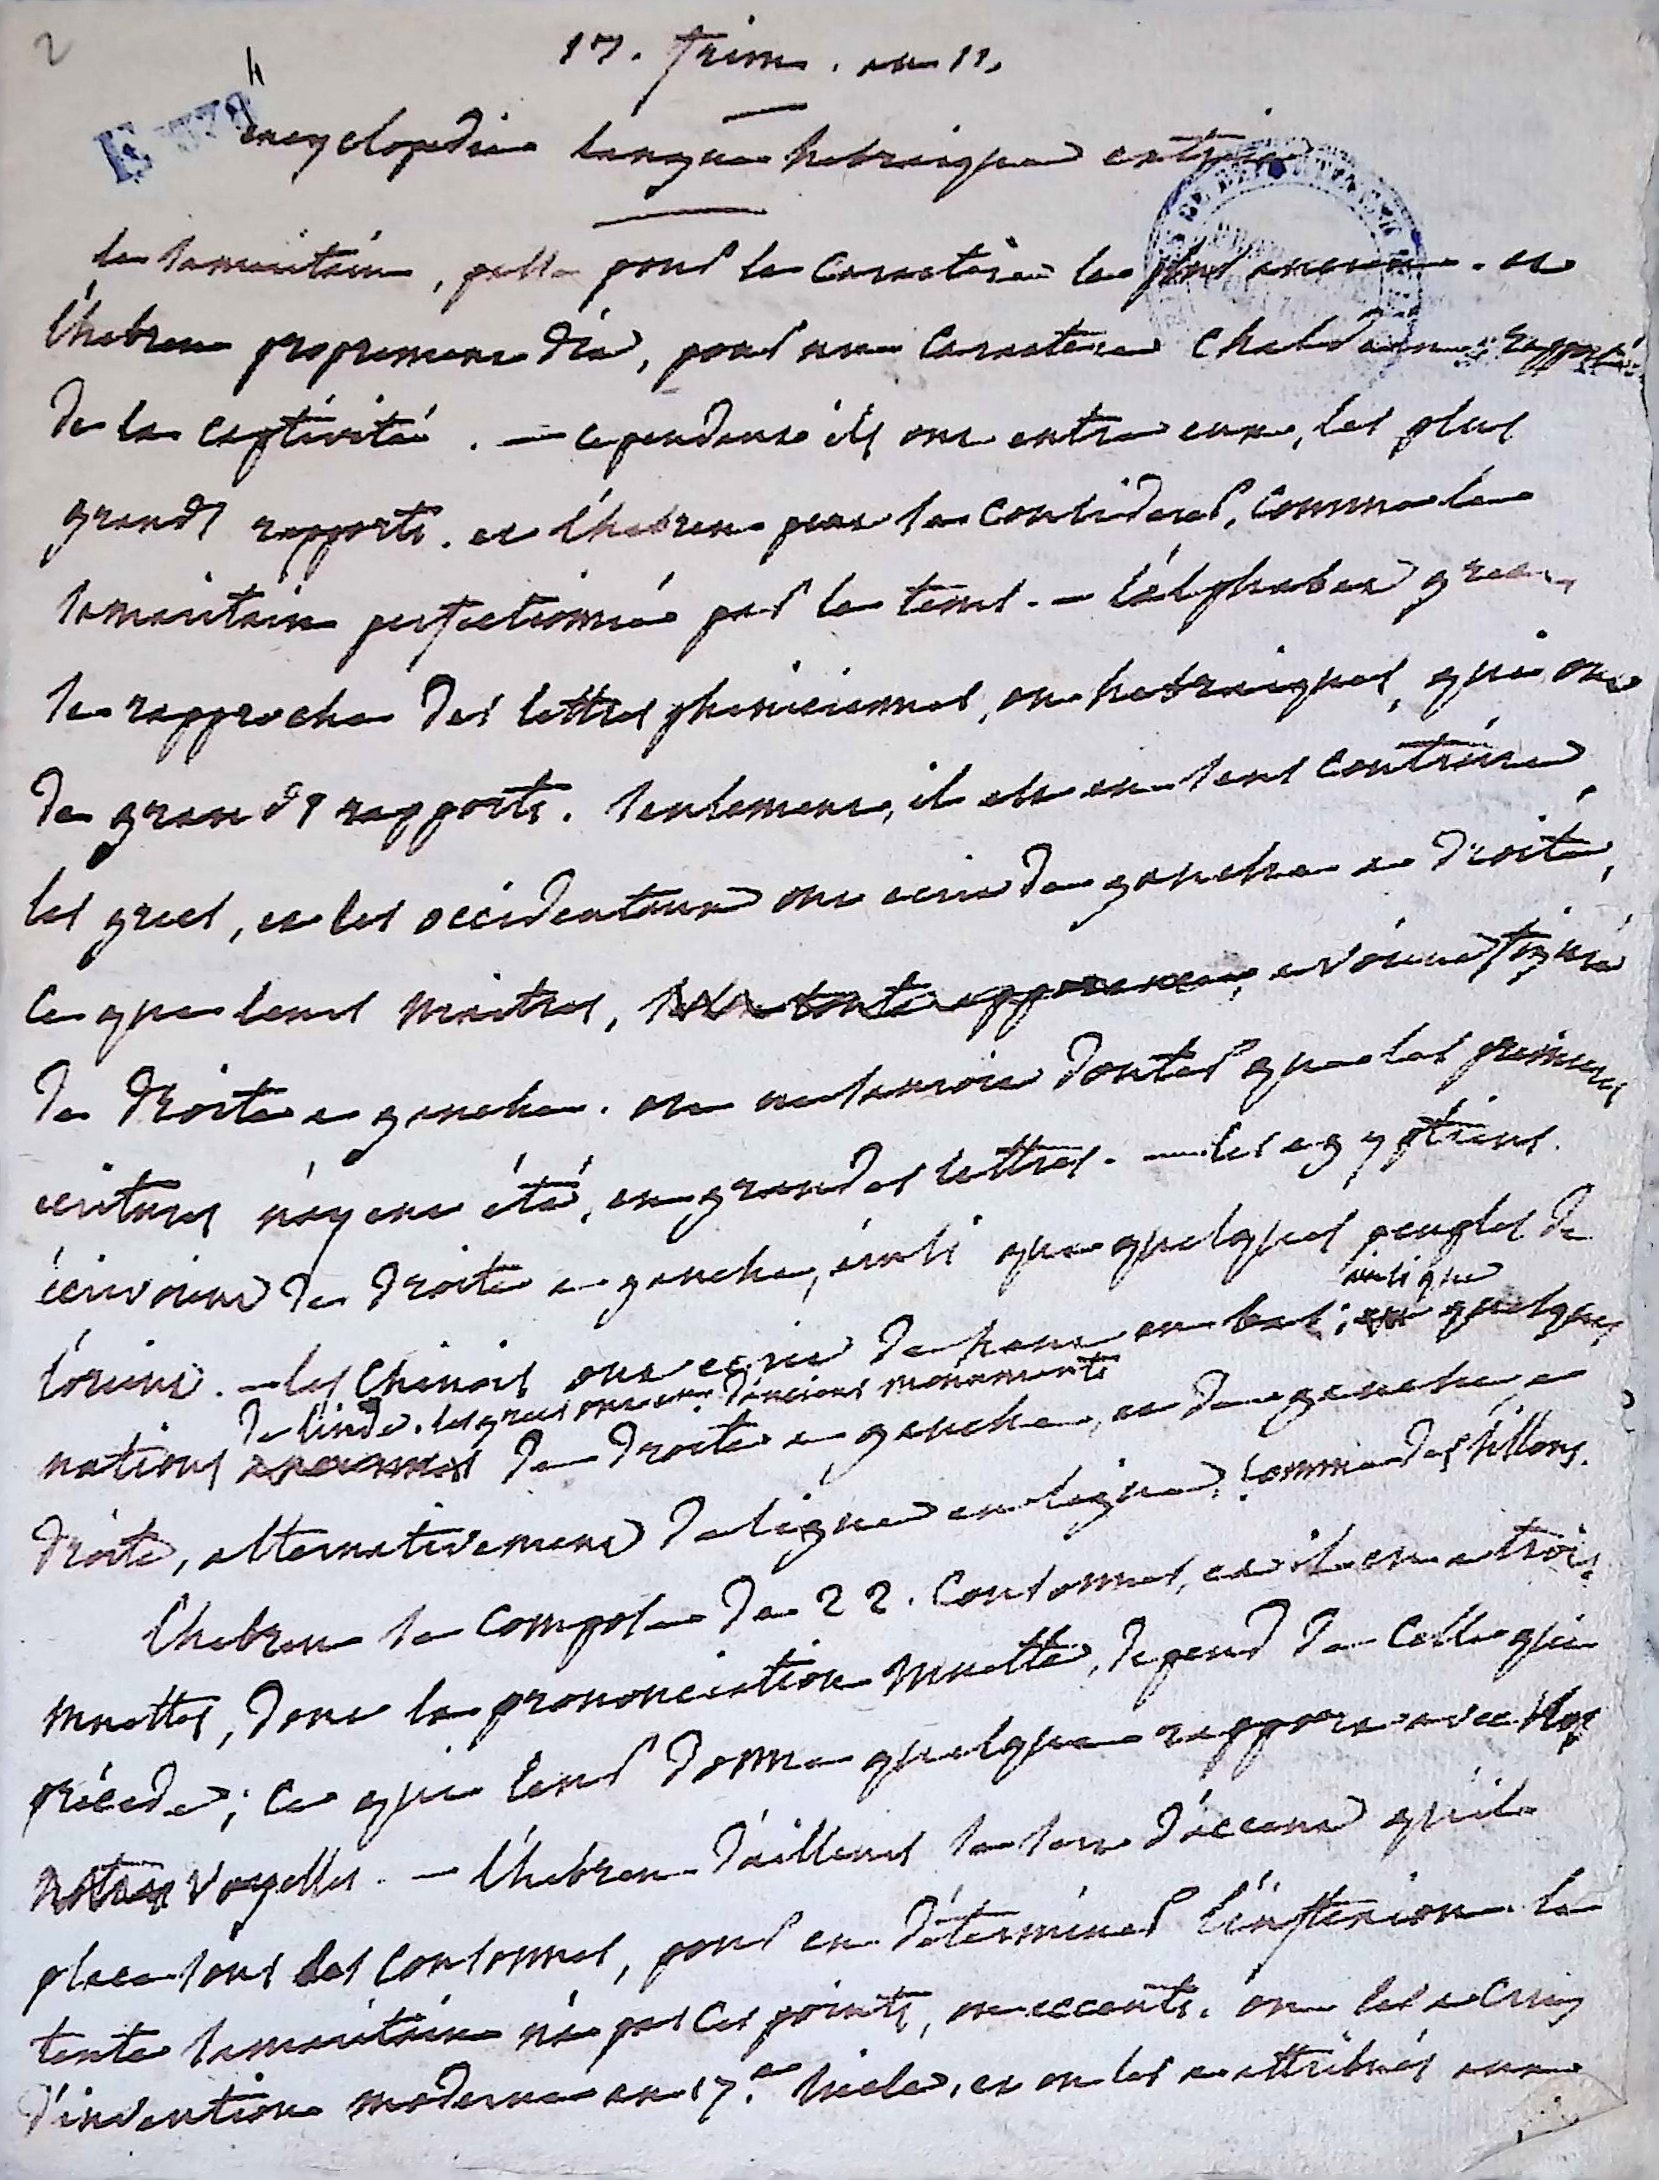 2
4
17. frim. an 11.
encyclopédie langue hebraique extrait
le samaritain, passe pour le caractere le plus ancien. et
l'hebreu proprement dit, pour un caractere chaldéen rapporté
de la captivité. — cependant ils ont entre eux, les plus
grands rapports. et l'hebreu peut se considerer, comme le
samaritain perfectionné par le tems. — l'alphabet grec
se rapproche des lettres pheniciennes, ou hebraiques, qui ont
de grands rapports. seulement, il est en sens contraire
les grecs, et les occidentaux ont ecrit de gauche a droite,
ce que leurs maitres, selon toute apparence, avoient figuré
de droite a gauche. on ne sauroit douter que les premieres
ecritures n'ayent été, en grandes lettres. — les egyptiens
écrivoient de droite a gauche, ainsi que quelques peuples de
l'orient. — les chinois ont ecrit de haut en bas; ainsi que quelques
nations de l'inde. les grecs ont eu d'anciens monuments de droite a gauche, et de gauche a
droite, alternativement de ligne en ligne, comme des sillons.
l'hebreu se compose de 22. consonnes, et il en a trois
muettes, dont la prononciation muette, depend de celle qui
précede; ce qui leur donne quelque rapport avec nos
voyelles. — l'hebreu d'ailleurs se sert d'accent qu'il
place sous les consonnes, pour en déterminer l'inflexion. le
texte samaritain n'a pas ces points, ou accents. on les a crus
d'invention moderne au 17.e siecle, et on les a attribués aux